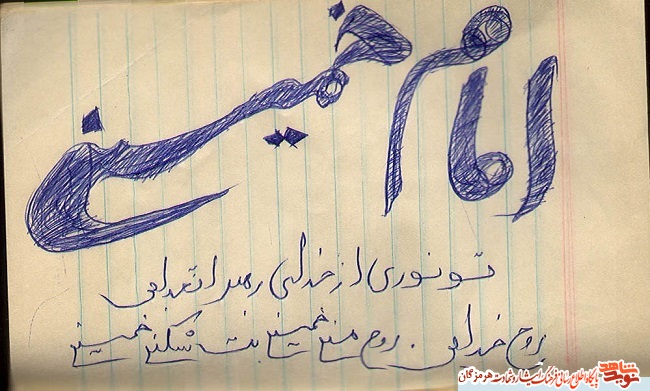 امام خمینی
تو نوری از خدائی رهبر انقلابی
روح خدایی . روح منی خمینی بت شکنی خمینی
نوید شاهد پایگاه اطلاع رسانی فرهنگ ایثار و شهادت هرمزگان